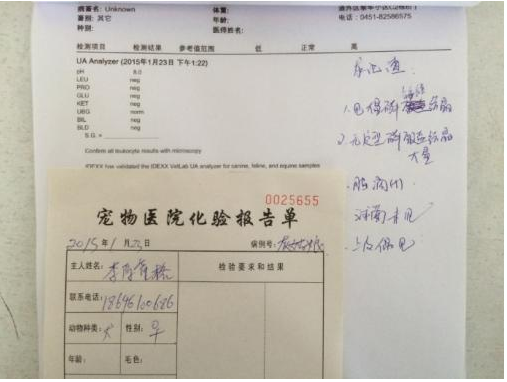 病畜名: Unknown
畜别: 其它
种别:
体重:
年龄:
医师姓名:
电话:0451-82586575
检测项目 检测结果 参考值范围 低 正常 高
UA Analyzer (2015年1月23日 下午1:22)
pH 8.0
LEU neg
PRO neg
GLU neg
KET neg
UBG norm
BIL neg
BLD neg
S.G. =
Confirm all leukocyte results with microscopy
IDEXX has validated the IDEXX VetLab UA analyzer for canine, feline, and equine samples
尿沉渣:
2. 无定型磷酸盐结晶
大量
0025655
宠物医院化验报告单
2015年1月23日 病例号:
主人姓名: 检验要求和结果
联系电话: 18646100686
动物种类: 犬 性别: 早
年龄: 毛色: